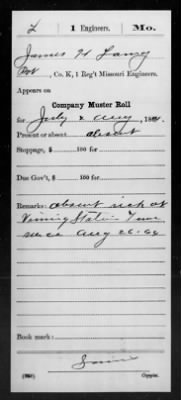 L 1 Engineers. Mo.
James H
Pvt, Co. K, 1 Reg't Missouri Engineers.
Appears on
Company Muster Roll
for July & Aug, 1864.
Present or absent absent
Stoppage, $ 100 for
Due Gov't, $ 100 for
Remarks: absent sick at
Station Tenn
since Aug 26-64
Book mark:
(858) Copyist.